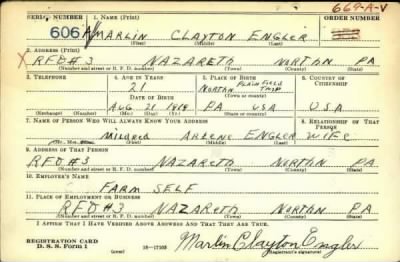 SERIAL NUMBER 1. NAME (Print) 669-A-V ORDER NUMBER
606 MARLIN CLAYTON ENGLER
(First) (Middle) (Last)
2. ADDRESS (Print)
X RFD#3 NAZARETH NORTHN PA
(Number and street or R. F. D. number) (Town) (County) (State)
3. TELEPHONE 4. AGE IN YEARS 5. PLACE OF BIRTH 6. COUNTRY OF CITIZENSHIP
21 NORTHN PLAINFIELD TWSP U.S.A
DATE OF BIRTH (Town or county)
AUG. 21 1919 PA USA
(Exchange) (Number) (Mo.) (Day) (Yr.) (State or country)
7. NAME OF PERSON WHO WILL ALWAYS KNOW YOUR ADDRESS 8. RELATIONSHIP OF THAT PERSON
MILDRED ARLENE ENGLER WIFE
(First) (Middle) (Last)
9. ADDRESS OF THAT PERSON
RFD#3 NAZARETH NORTHN PA
(Number and street or R. F. D. number) (Town) (County) (State)
10. EMPLOYER'S NAME
FARM SELF
11. PLACE OF EMPLOYMENT OR BUSINESS
RFD#3 NAZARETH NORTHN PA
(Number and street or R. F. D. number) (Town) (County) (State)
I AFFIRM THAT I HAVE VERIFIED ABOVE ANSWERS AND THAT THEY ARE TRUE.
REGISTRATION CARD
D. S. S. Form 1 (over) 16—17105 Marlin Clayton Engler
(Registrant's signature)